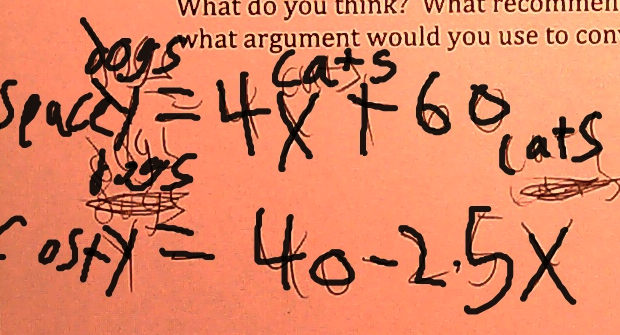 What do you think? What recommen
what argument would you use to con
dogs
cats
Space y = 4x + 60
cats
dogs
Cost y = 40-2.5x